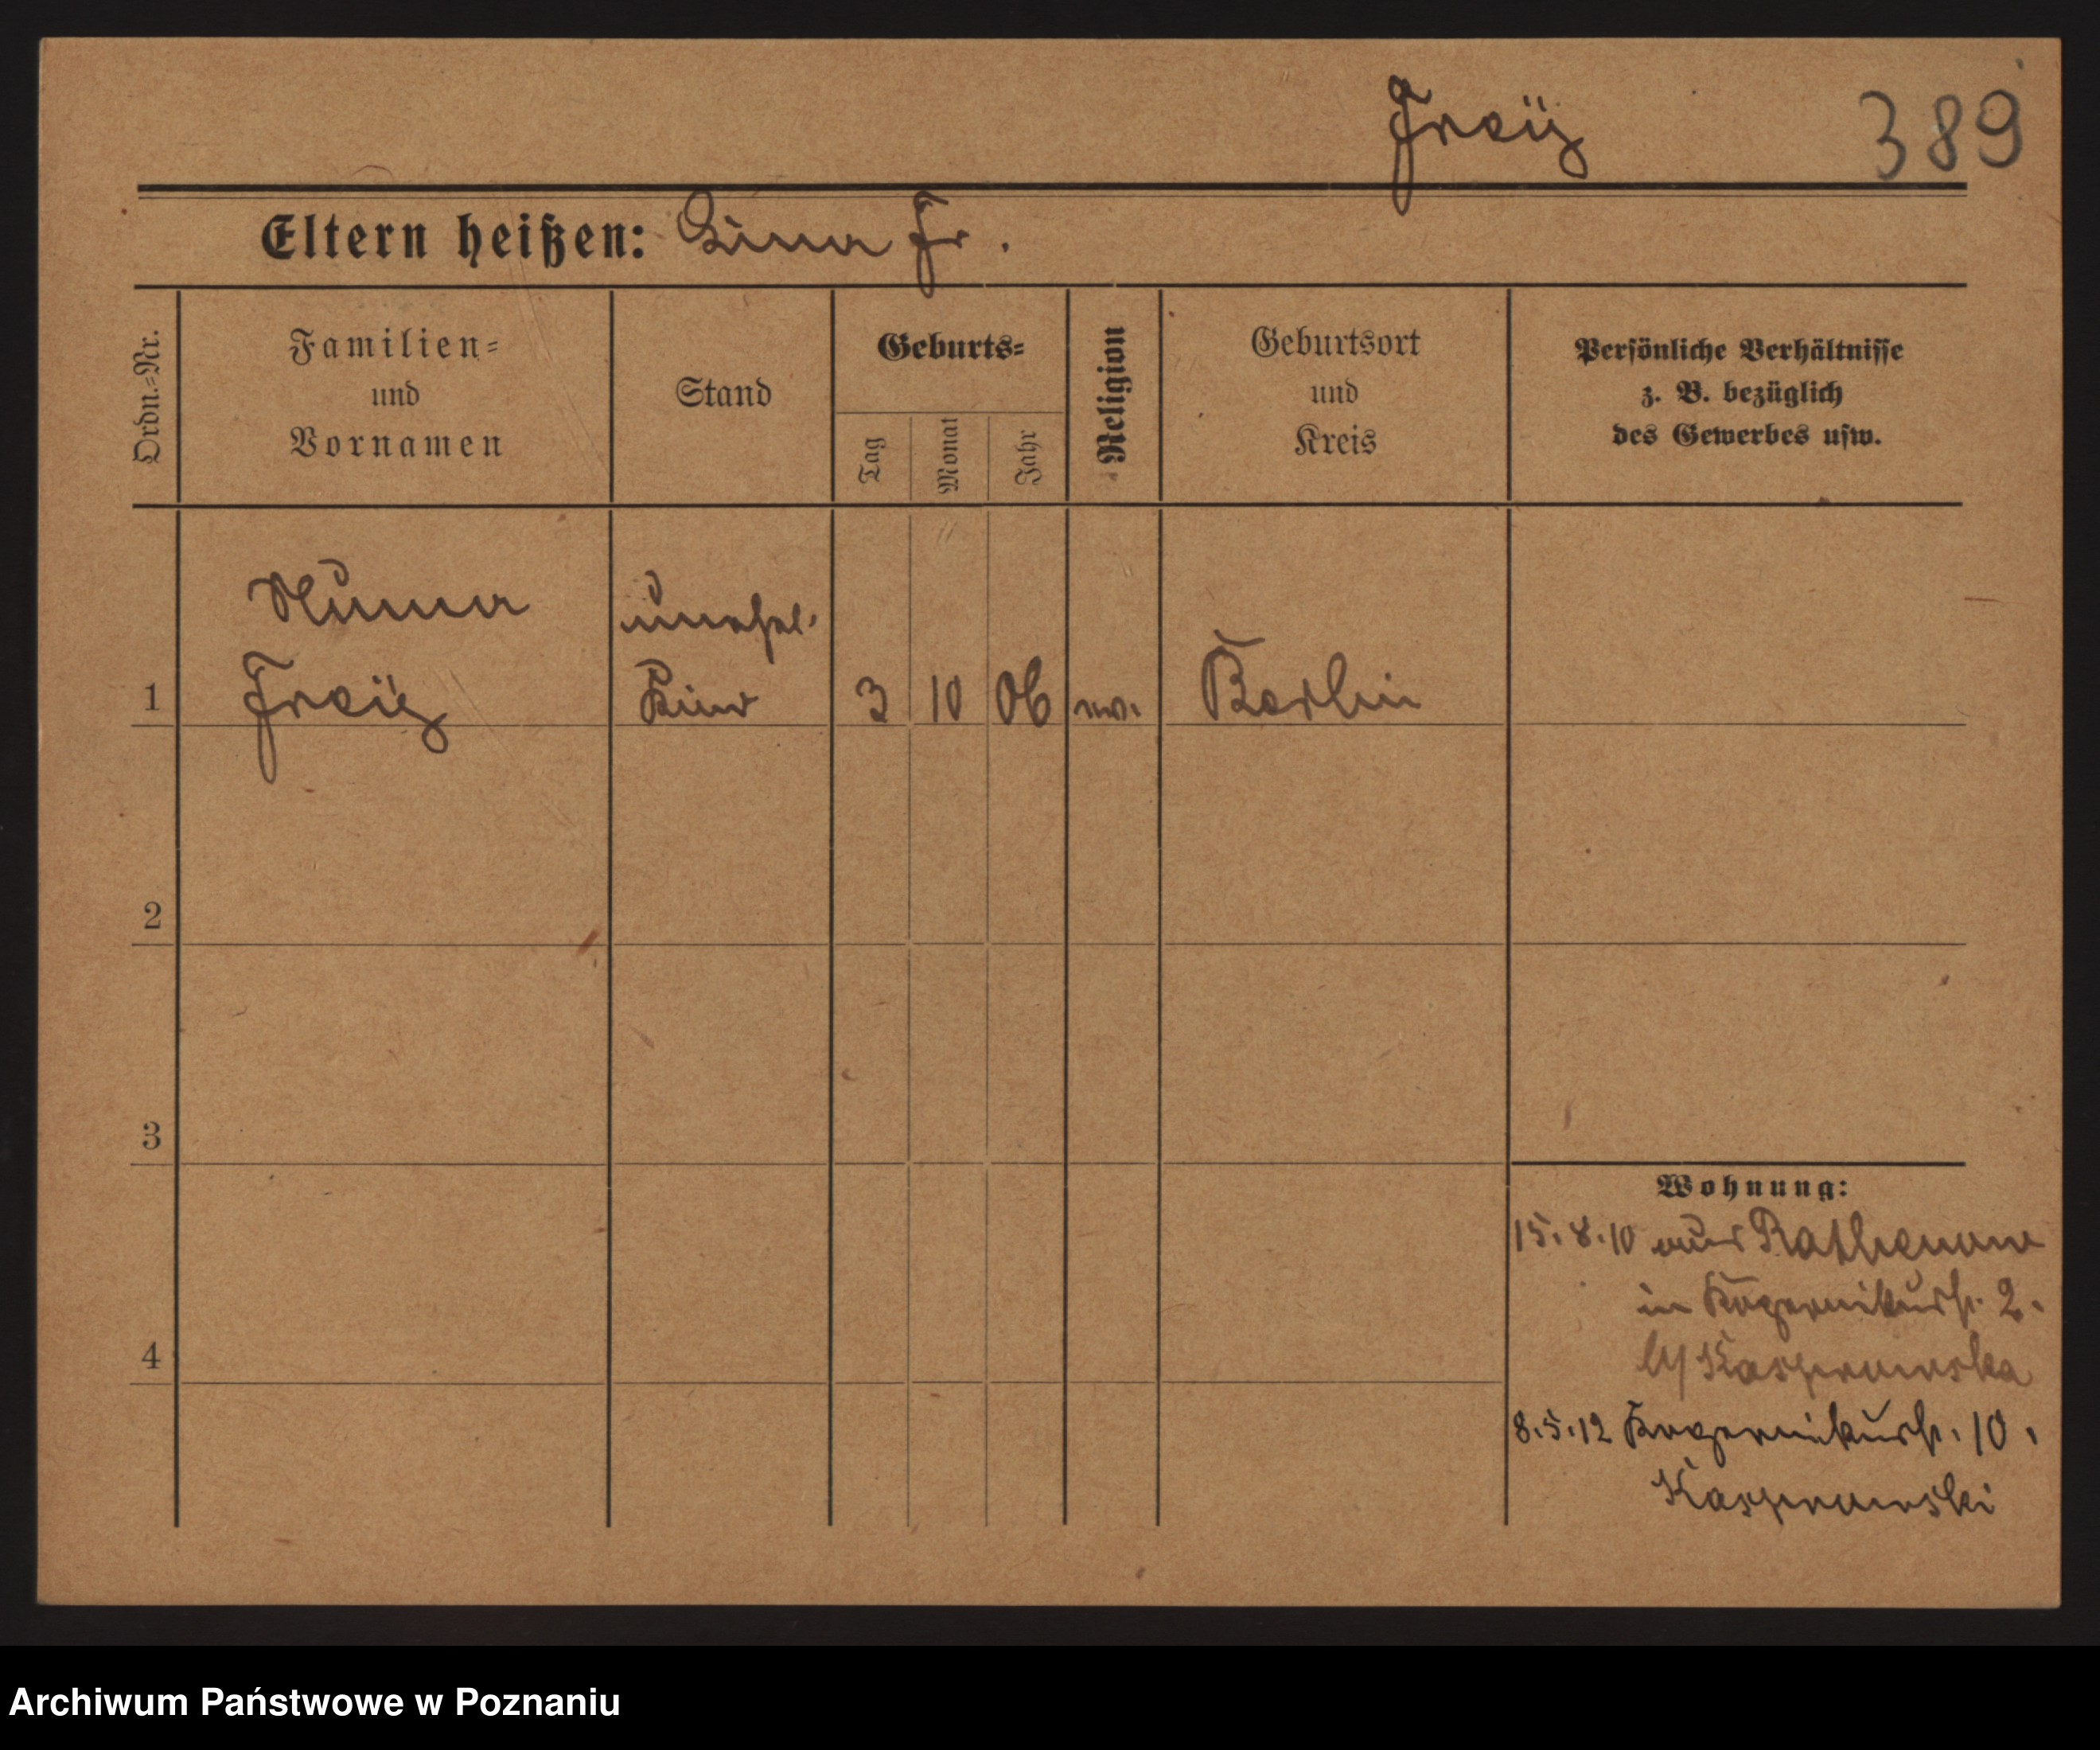 Freÿ
389
Eltern heißen: Lina Fr.
Ordn.-Nr.
Familien- und Vornamen
Stand
Geburts-
Tag
Monat
Jahr
Religion
Geburtsort und Kreis
Persönliche Verhältnisse
z. B. bezüglich
des Gewerbes usw.
unehel.
1 Freÿ Kind 3 10 06 ev. Berlin
2
3
Wohnung:
15.8.10 aus Rathenow
in Kopernikusstr. 2.
b/ Kasprowska
4
8.5.12 Kopernikusstr. 10.
Kasprowski
Archiwum Państwowe w Poznaniu